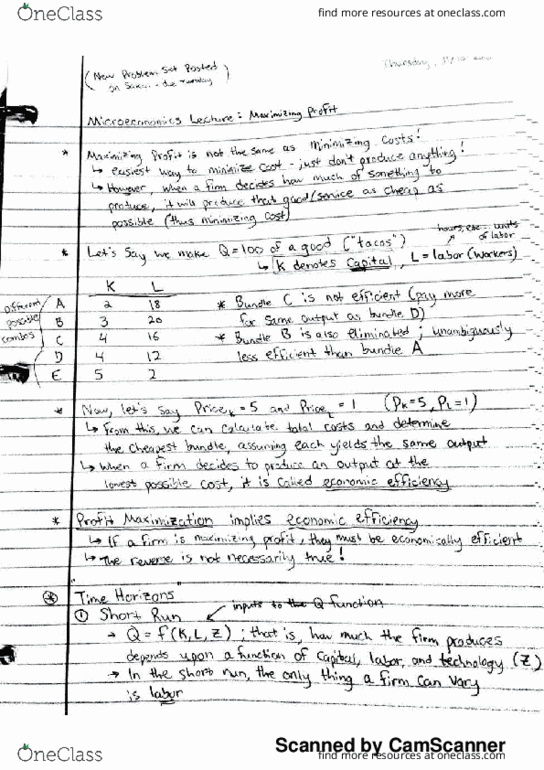 OneClass
find more resources at oneclass.com
(New Problem Set Posted
on Sakai - due Tuesday)
Thursday,
Microeconomics Lecture: Maximizing Profit
* Maximizing Profit is not the same as minimizing costs!
↳ easiest way to minimize cost - just don't produce anything!
↳ However, when a firm decides how much of something to
produce, it will produce that good/service as cheap as
possible (thus minimizing cost)
hours, etc... units
of labor
* Let's say we make Q=100 of a good ("tacos")
↳ K denotes Capital, L = labor (workers)
K L
different
possible
combos
A 2 18
B 3 20
C 4 16
D 4 12
E 5 2
* Bundle C is not efficient (pay more
for same output as bundle D)
* Bundle B is also eliminated; unambiguously
less efficient than bundle A
* Now, let's say Price_k = 5 and Price_L = 1 (P_K=5, P_L=1)
↳ From this, we can calculate total costs and determine
the cheapest bundle, assuming each yields the same output
↳ When a firm decides to produce an output at the
lowest possible cost, it is called economic efficiency
* Profit Maximization implies economic efficiency
↳ If a firm is maximizing profit, they must be economically efficient
↳ The reverse is not necessarily true!
* "Time Horizons"
① Short Run
inputs to the Q function
→ Q = f(K, L, Z); that is, how much the firm produces
depends upon a function of capital, labor, and technology (Z)
→ In the short run, the only thing a firm can vary
is labor
Scanned by CamScanner
OneClass
find more resources at oneclass.com